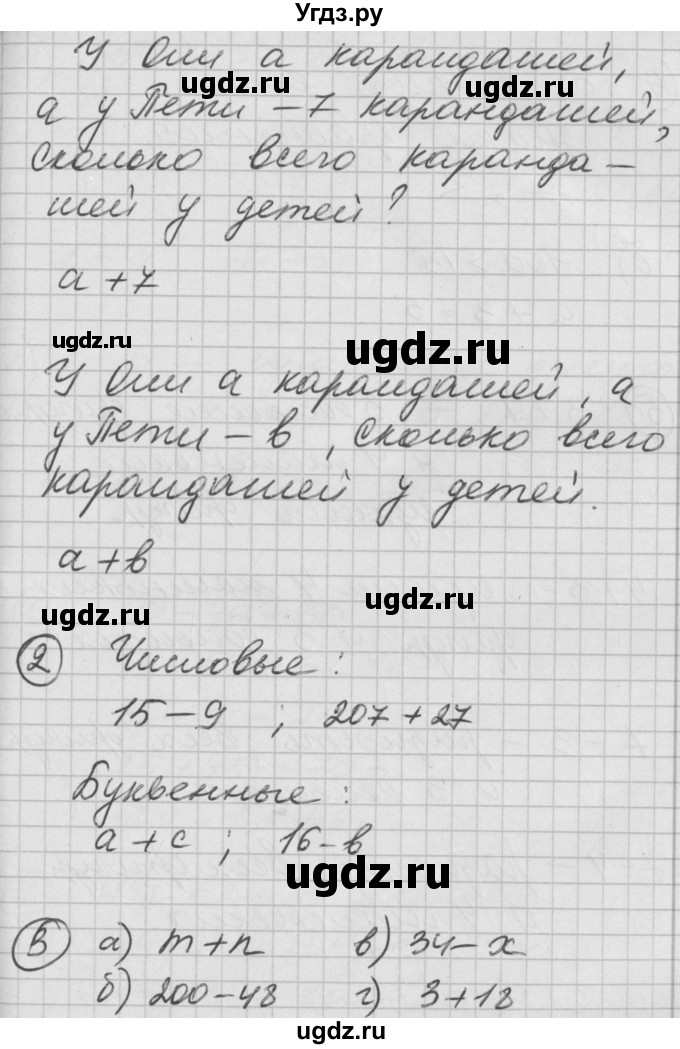 Угдз.ру
У Оли а карандашей,
ugdz.ru ugdz.ru
а у Пети – 7 карандашей,
сколько всего каранда –
шей у детей?
а + 7
ugdz.ru ugdz.ru
У Оли а карандашей, а
у Пети – в, сколько всего
карандашей у детей.
а + в
ugdz.ru ugdz.ru
2 Числовые:
15 – 9 ; 207 + 27
Буквенные:
а + с ; 16 – в
ugdz.ru
3 а) m + n в) 34 – x
б) 200 – 48 г) 3 + 18
ugdz.ru